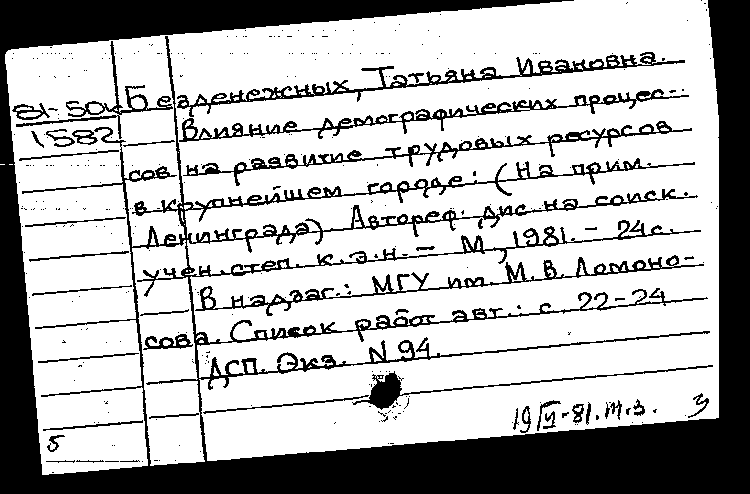 81-50к Безденежных, Татьяна Ивановна.
1582 Влияние демографических процес-
сов на развитие трудовых ресурсов
в крупнейшем городе: (На прим.
Ленинграда) Автореф. дис на соиск.
учен. степ. к.э.н. – М., 1981. – 24 с.
В надзаг.: МГУ им. М. В. Ломоно-
сова. Список работ авт.: с. 22-24
ДСП. Экз. N 94.
5